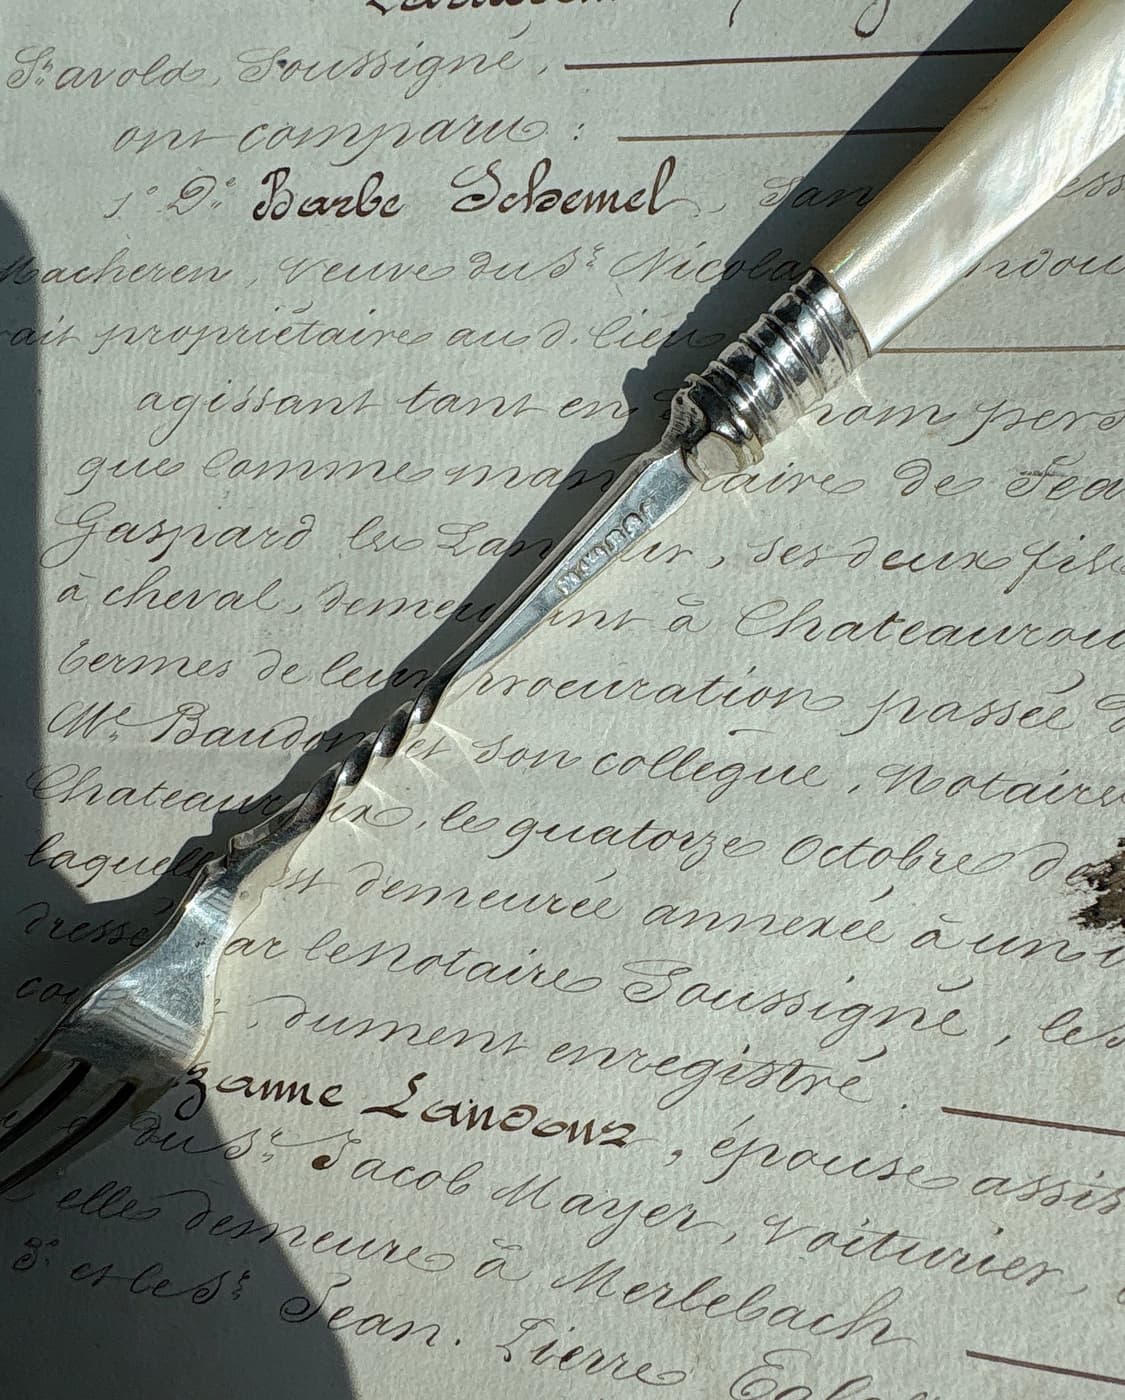 St. avold, Soussigné,
ont comparu :
1° De. Barbe Schemel, San
Macheren, veuve du Sr. Nicolas
propriétaire au d. lieu
agissant tant en nom pers
que comme man taire de Jea
Gaspard les Lan ur, ses deux fils
à cheval, demeurant à Chateaurou
termes de leur procuration passée d
Me. Baudon et son collègue, Notaire
Chateauroux, le quatorze Octobre d
laquelle est demeurée annexée à un
dressé par le Notaire Soussigné, les
dument enregistré.
zanne Landouz, épouse assis
du Sr. Jacob Mayer, voiturier,
elle demeure à Merlebach
3° et le Sr. Jean. Pierre